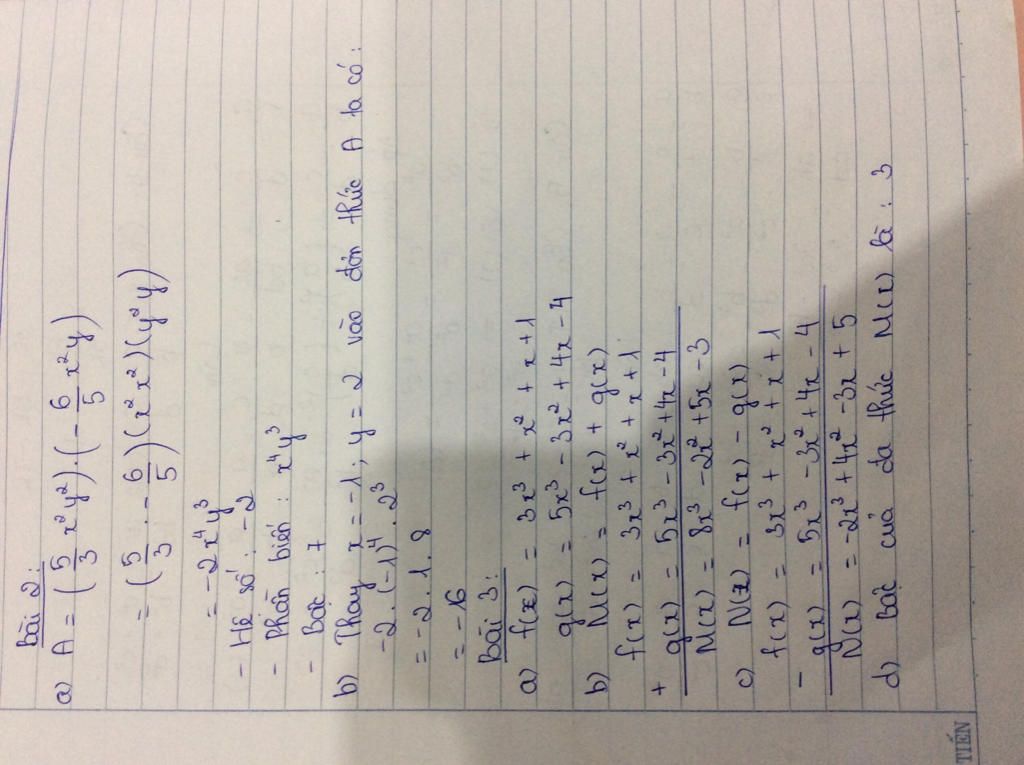 Bài 2:
a) A = (5/3 x²y²).(-6/5 x²y)
= (5/3 . -6/5)(x²x²)(y²y)
= -2x⁴y³
- Hệ số: -2
- Phần biến: x⁴y³
- Bậc: 7
b) Thay x = -1; y = 2 vào đơn thức A ta có:
-2.(-1)⁴.2³
= -2.1.8
= -16
Bài 3:
a) f(x) = 3x³ + x² + x + 1
g(x) = 5x³ - 3x² + 4x - 4
b) M(x) = f(x) + g(x)
f(x) = 3x³ + x² + x + 1
+
g(x) = 5x³ - 3x² + 4x - 4
M(x) = 8x³ - 2x² + 5x - 3
c) N(x) = f(x) - g(x)
f(x) = 3x³ + x² + x + 1
-
g(x) = 5x³ - 3x² + 4x - 4
N(x) = -2x³ + 4x² - 3x + 5
d) Bậc của đa thức M(x) là: 3
TIẾN